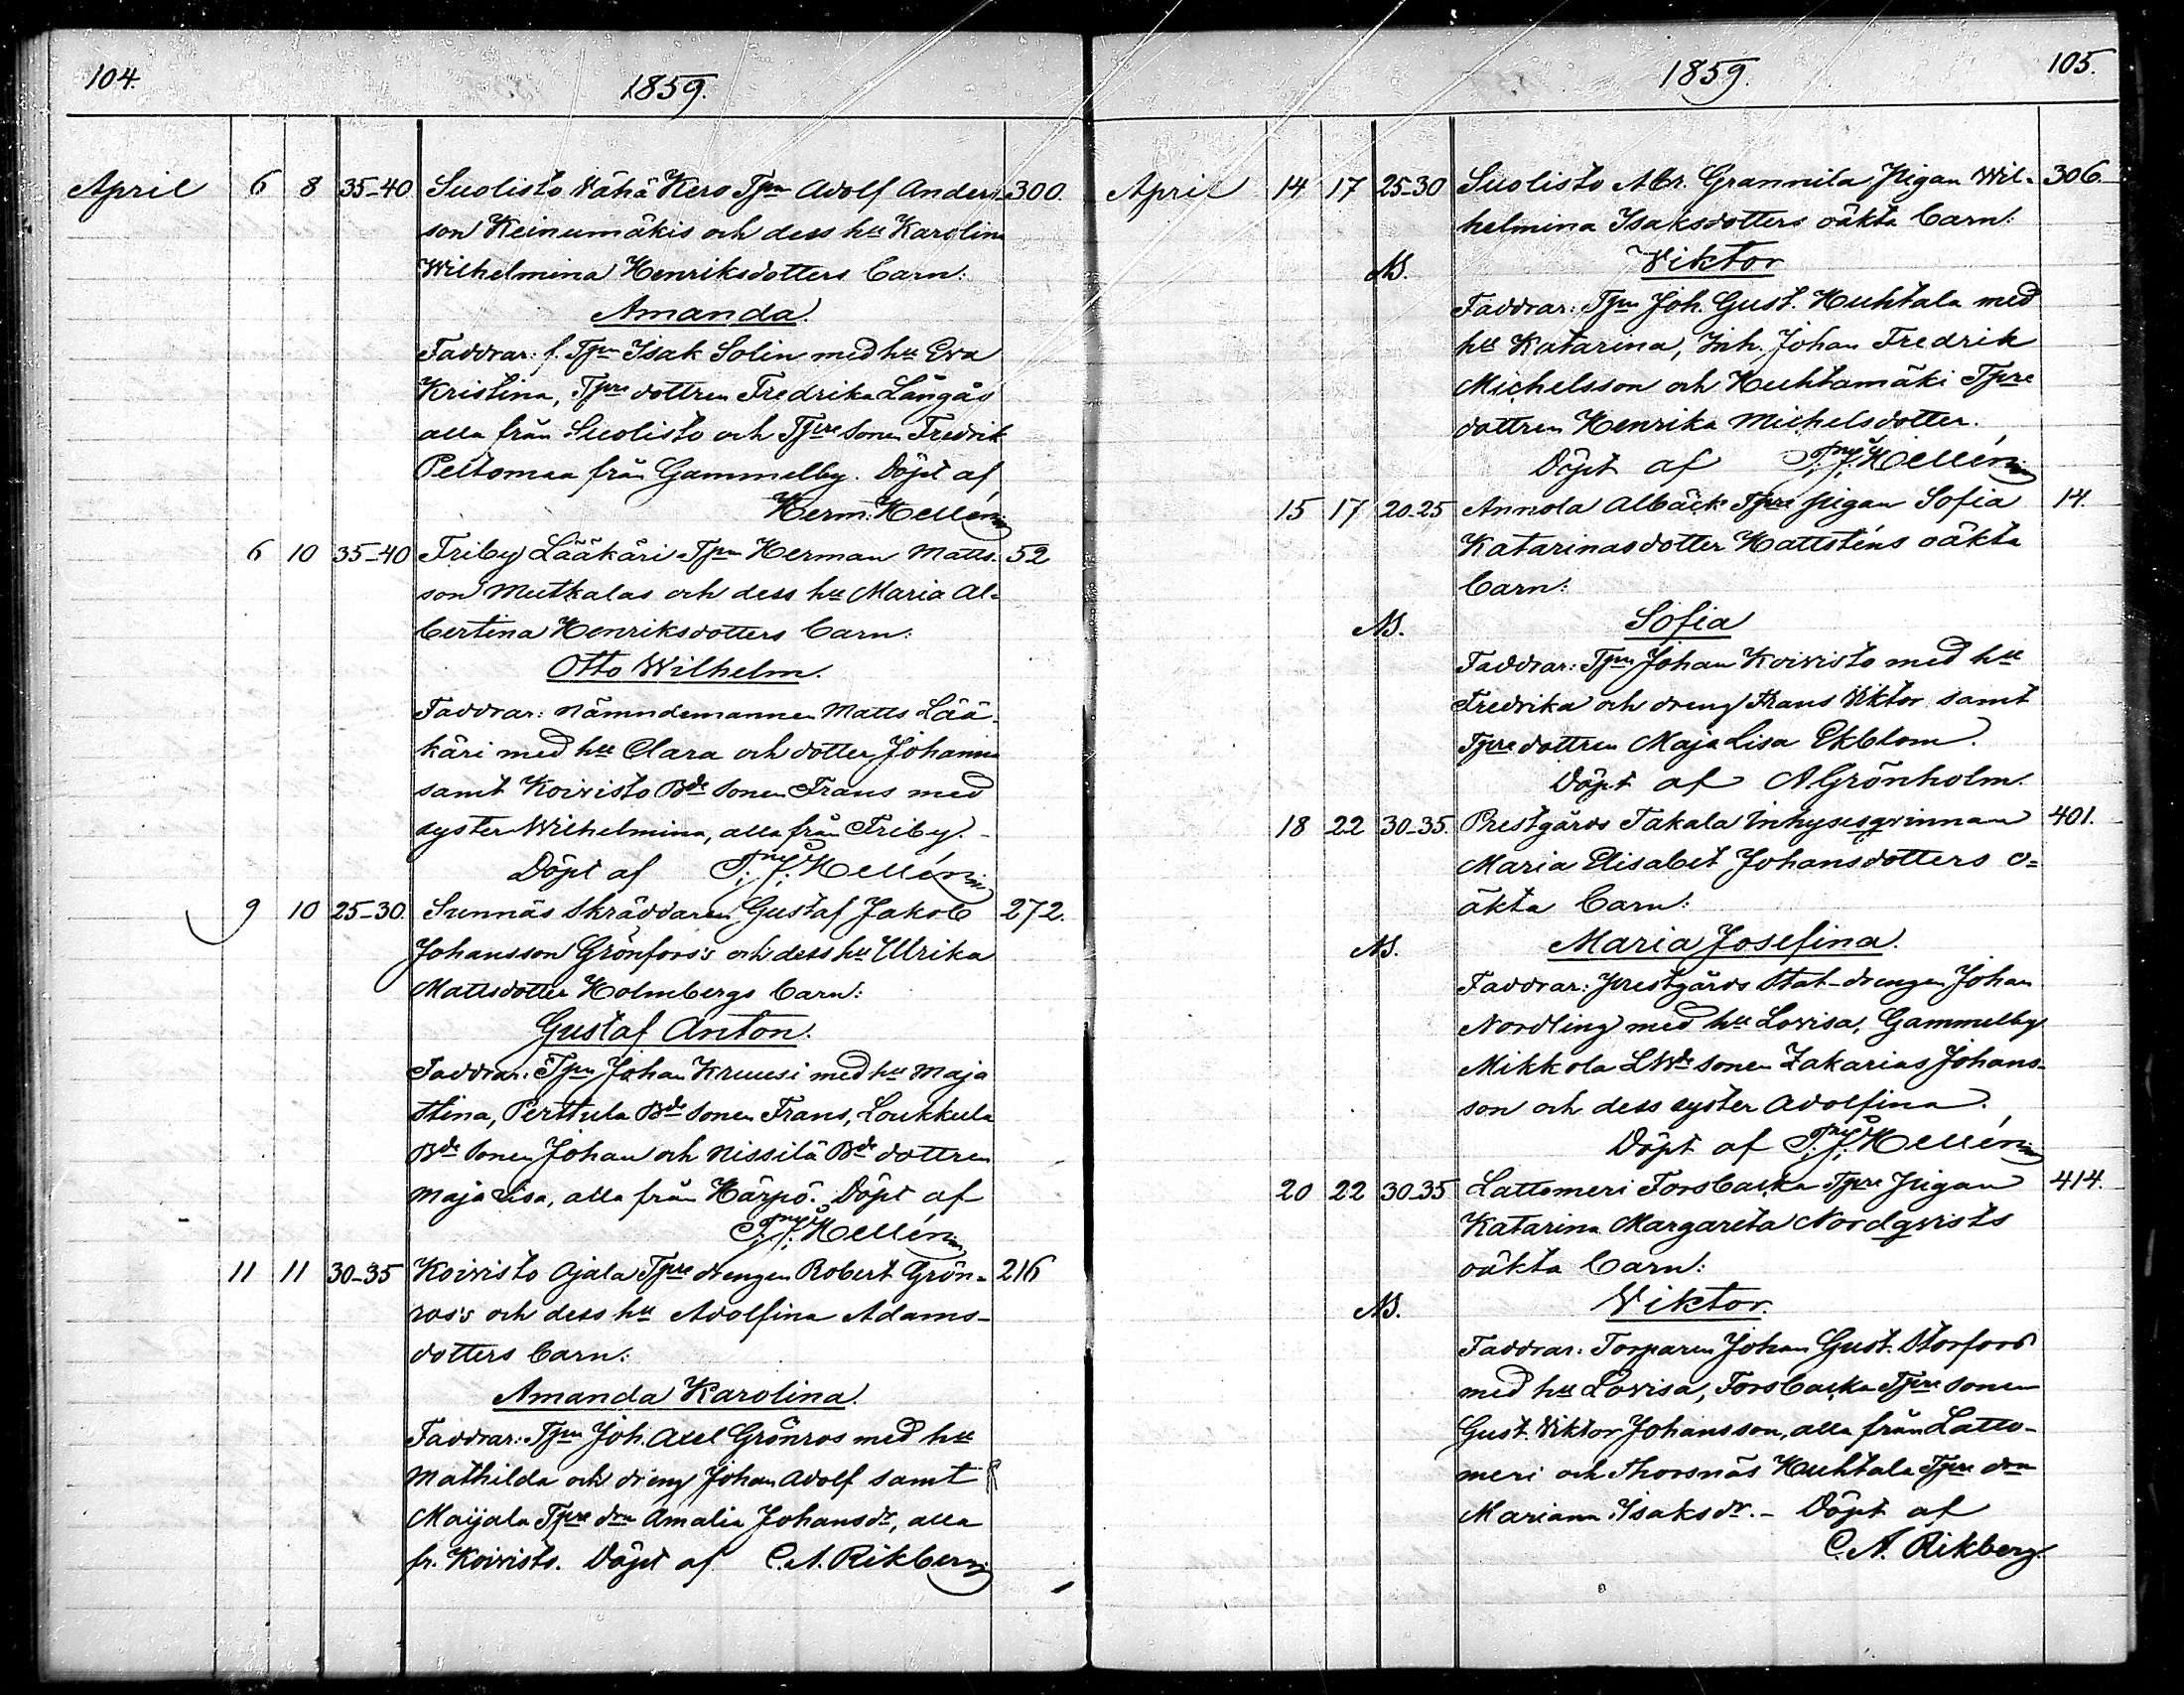 104.
1859.
April 6 8 35-40 Suolisto Vähä Kero Tpn Adolf Anders- 300.
son Keinumäkis och dess hu Karolina
Wilhelmina Henriksdotters barn:
Amanda.
Faddrar: f. Tpn Isak Solin med hu Eva
Kristina, Tpre dottren Fredrika Långås
alla från Suolisto och Tpre sonen Fredrik
Peltomaa från Gammelby. Döpt af
Herm. Hellén
6 10 35-40 Friby Lääkäri Tpn Herman Matts- 52
son Mutkalas och dess hu Maria Al-
bertina Henriksdotters barn:
Otto Wilhelm.
Faddrar: Nämndemannen Matts Lää-
käri med hu Clara och dotter Johanna
samt Koivisto Bde sonen Frans med
syster Wilhelmina, alla från Friby.-
Döpt af Hellén
9 10 25-30. Sunnäs Skräddaren Gustaf Jakob 272.
Johansson Grönfors's och dess hu Ulrika
Mattsdotter Holmbergs barn:
Gustaf Anton.
Faddrar: Tpn Johan Kruusi med hu Maja
Stina, Perttula Bde sonen Frans, Loukkula
Bde sonen Johan och Nissilä Bde dottren
Maja Lisa, alla från Härpö. Döpt af
Hellén
11 11 30-35 Koivisto Ojala Tpre drengen Robert Grön- 216
ros's och dess hu Adolfina Adams-
dotters barn:
Amanda Karolina.
Faddrar: Tpn Joh. Axel Grönros med hu
Mathilda och dreng Johan Adolf samt
Maijala Tpre drn Amalia Johansdr, alla
fr. Koivisto. Döpt af C.A. Rikberg
1859.
105.
April 14 17 25-30 Suolisto Abr. Grannila Pigan Wil- 306.
helmina Isaksdotters oäkta barn:
Viktor
Faddrar: Tpn Joh. Gust. Huhtala med
hu Katarina, Inh. Johan Fredrik
Michelsson och Huhtamäki Tpre
dottren Henrika Michelsdotter.
Döpt af Hellén
15 17 20-25 Annola Albäck Tpre pigan Sofia 14.
Katarinasdotter Hattsténs oäkta
barn:
Sofia
Faddrar: Tpn Johan Koivisto med hu
Fredrika och dreng Frans Viktor samt
Tpre dottren Maja Lisa Ekblom.
Döpt af A Grönholm.
18 22 30-35. Prestgårds Takala Inhysesqvinnan 401.
Maria Elisabet Johansdotters o=
äkta barn:
Maria Josefina.
Faddrar: Prestgårds Stat-drengen Johan
Nordling med hu Lovisa, Gammelby
Mikkola sonen Zakarias Johans-
son och dess syster Adolfina.
Döpt af Hellén
20 22 30-35 Lattomeri Forsbacka Tpre Pigan 414.
Katarina Margareta Nordqvists
oäkta barn:
Viktor.
Faddrar: Torparen Johan Gust. Storfors
med hu Lovisa, Forsbacka Tpre sonen
Gust. Viktor Johansson, alla från Latto-
meri och Thorsnäs Huhtala Tpre drn
Mariana Isaksdr.- Döpt af
C.A. Rikberg.